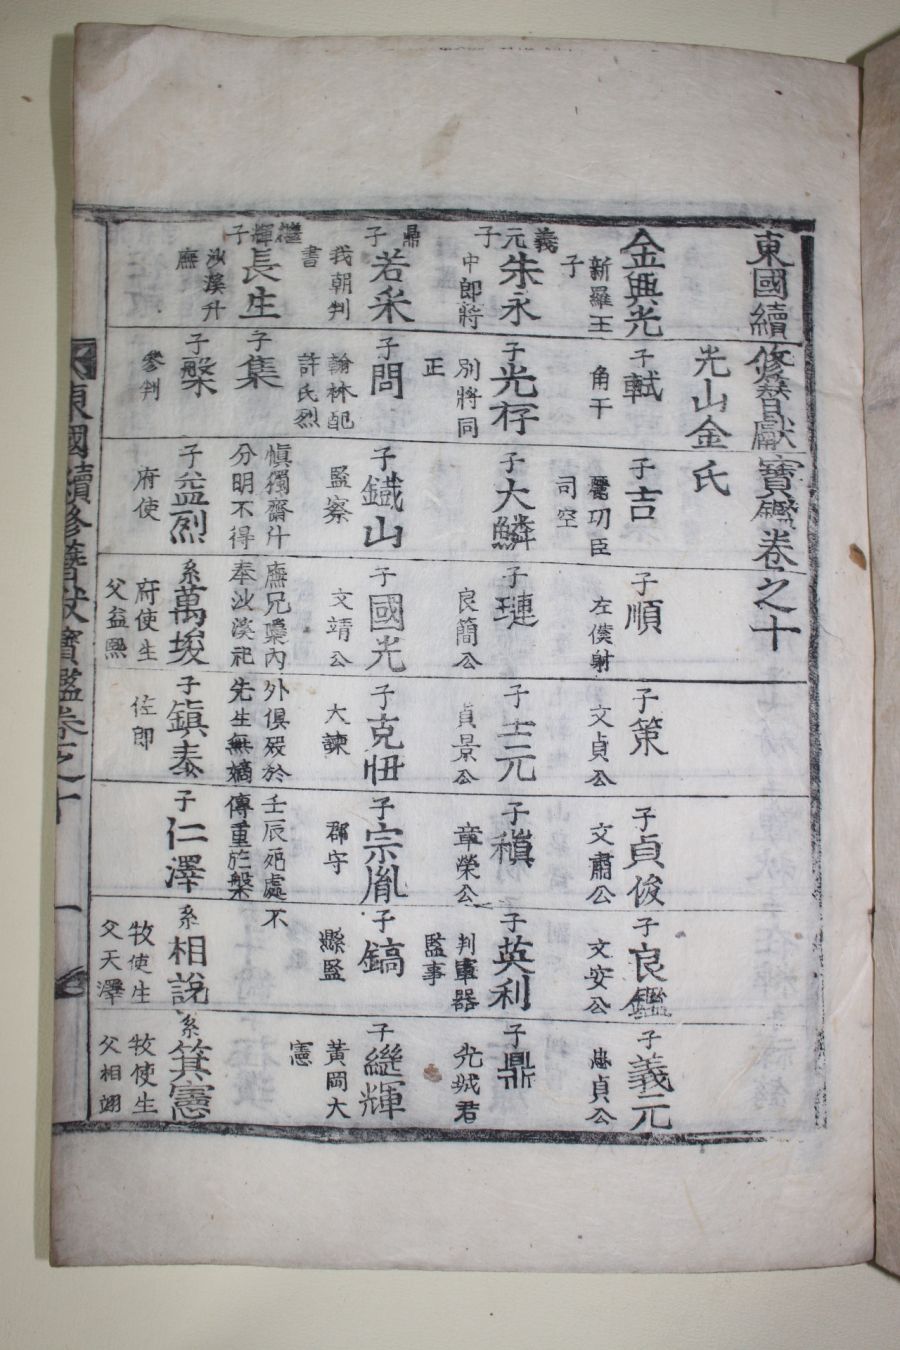 東國續修普獻寶鑑卷之十
光山金氏
金興光
新羅王
子
子軾
角干
子吉
麗功臣
司空
子順
左僕射
子策
文貞公
子貞俊
文肅公
子良鑑
文安公
子義元
忠貞公
義元子
朱永
中郎將
子光存
別將同
正
子大鱗
子璉
良簡公
子士元
貞景公
子稹
章榮公
子英利
判軍器
監事
子鼎
光城君
鼎子
若采
我朝判
書
子問
翰林配
許氏烈
子鐵山
監察
子國光
文靖公
子克忸
大諫
子宗胤
郡守
子鎬
縣監
子繼輝
黃岡大
憲
繼輝子
長生
沙溪升
廡
子集
愼獨齋升
廡兄㯖內
外俱歿於
壬辰死處不
分明不得
奉沙溪祀
先生無嫡
傳重於槃
子槃
參判
子益烈
府使
系萬埈
府使生
父益熙
子鎭泰
佐郎
子仁澤
系相說
牧使生
父天澤
系箕憲
牧使生
父相翊
東國續修普獻寶鑑卷之十
一